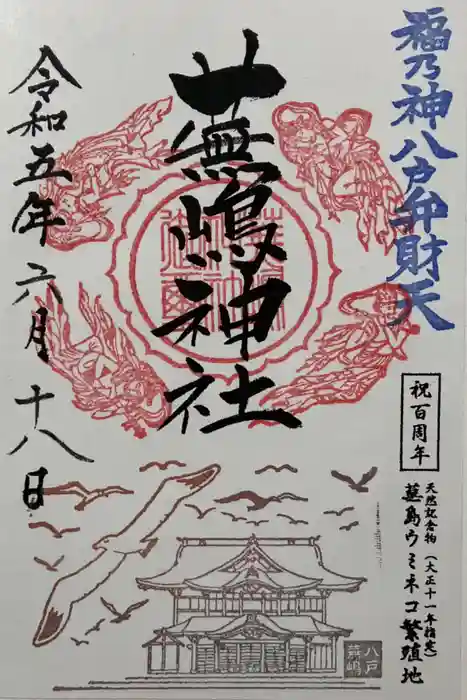 福乃神八戸弁財天
祝百周年
天然記念物（大正十一年指定）
蕪島ウミネコ繁殖地
蕪嶋神社
令和五年六月十八日
八戸
蕪嶋